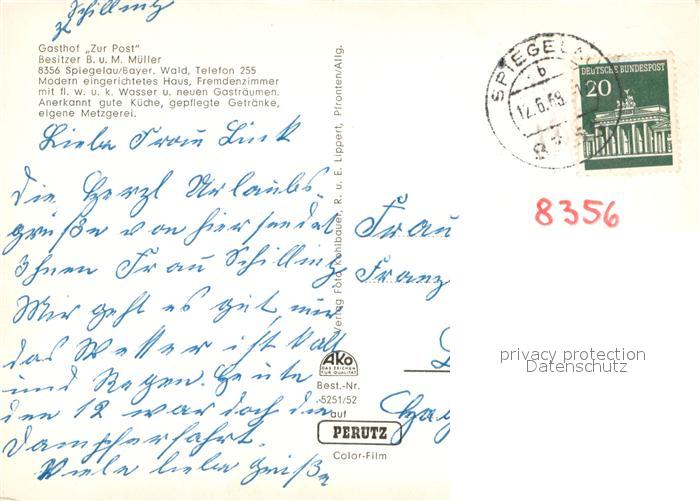 Schilling
Gasthof „Zur Post"
Besitzer B. u. M. Müller
8356 Spiegelau/Bayer. Wald, Telefon 255
Modern eingerichtetes Haus, Fremdenzimmer
mit fl. w. u. k. Wasser u. neuen Gasträumen.
Anerkannt gute Küche, gepflegte Getränke,
eigene Metzgerei.
Liebe Frau Link
die Herzl Urlaubs-
grüße von hier sendet
Ihnen Frau Schilling
Mir geht es gut, nur
das Wetter ist kalt
und Regen. Heute
den 12 war doch die
Dampferfahrt.
Viele liebe Grüße
Verlag Foto Kohlbauer, R. u. E. Lippert, Pfronten/Allg.
AKO
DAS ZEICHEN
FÜR QUALITÄT
Best.-Nr.
5251/52
auf
PERUTZ
Color-Film
SPIEGELAU
b
12.6.69
DEUTSCHE BUNDESPOST
20
8356
Frau
Franz
privacy protection
Datenschutz